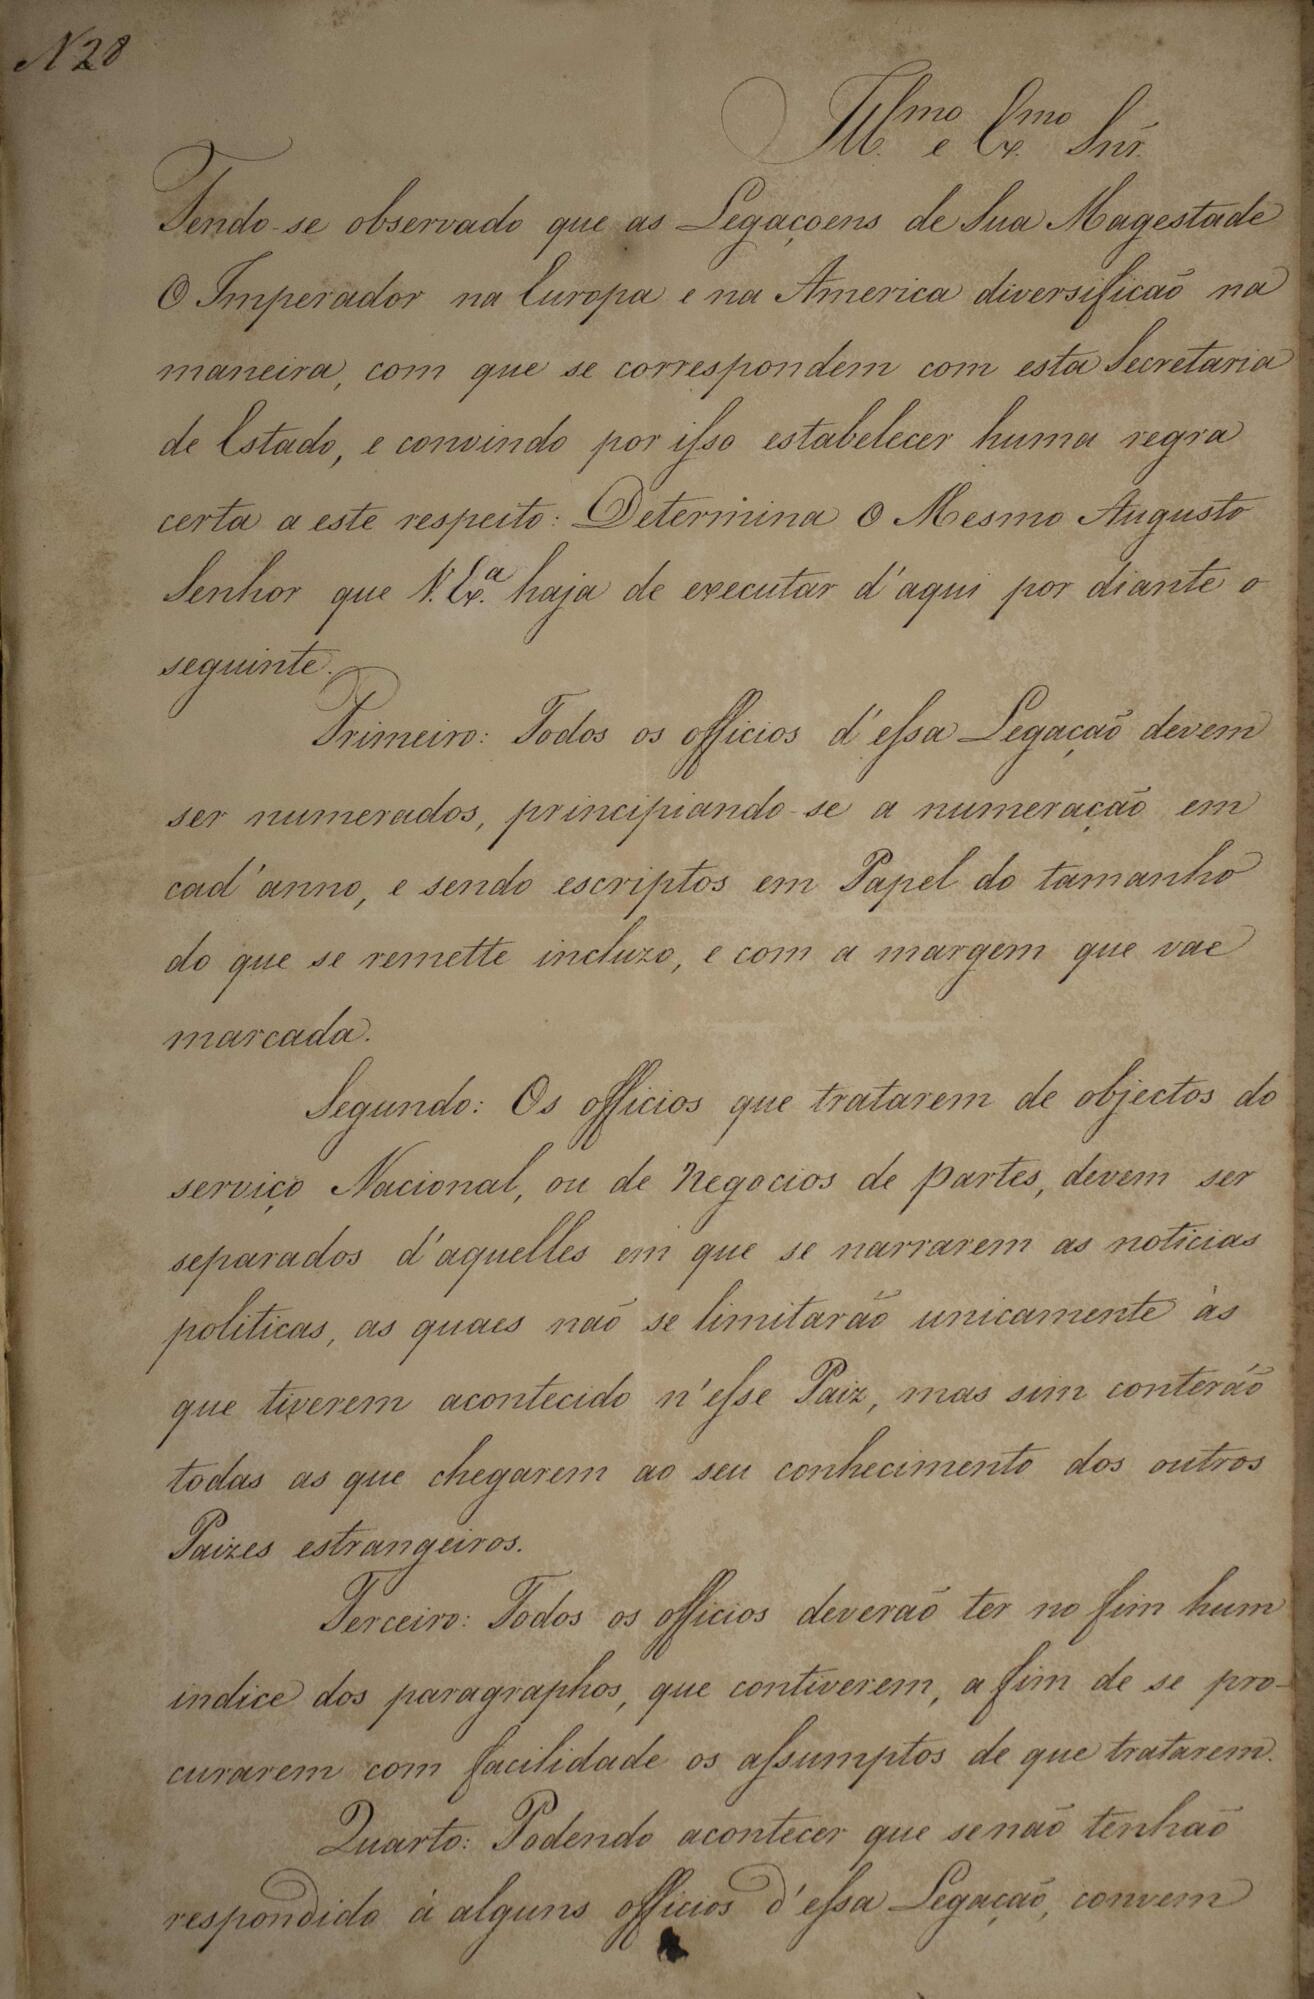 N 28
Ill.mo e Ex.mo Snr.
Tendo-se observado que as Legaçoens de Sua Magestade
O Imperador na Europa e na America diversificaõ na
maneira, com que se correspondem com esta Secretaria
de Estado, e convindo por isso estabelecer huma regra
certa a este respeito: Determina O Mesmo Augusto
Senhor que V. Ex.a haja de executar d'aqui por diante o
seguinte.
Primeiro: Todos os officios d'essa Legaçaõ devem
ser numerados, principiando-se a numeraçaõ em
cad'anno, e sendo escriptos em Papel do tamanho
do que se remette incluzo, e com a margem que vae
marcada.
Segundo: Os officios que tratarem de objectos do
serviço Nacional, ou de Negocios de partes, devem ser
separados d'aquelles em que se narrarem as noticias
politicas, as quaes naõ se limitaráõ unicamente às
que tiverem acontecido n'esse Paiz, mas sim conteráõ
todas as que chegarem ao seu conhecimento dos outros
Paizes estrangeiros.
Terceiro: Todos os officios deveraõ ter no fim hum
indice dos paragraphos, que contiverem, a fim de se pro-
curarem com facilidade os assumptos de que tratarem.
Quarto: Podendo acontecer que senaõ tenhaõ
respondido á alguns officios d'essa Legaçaõ, convem